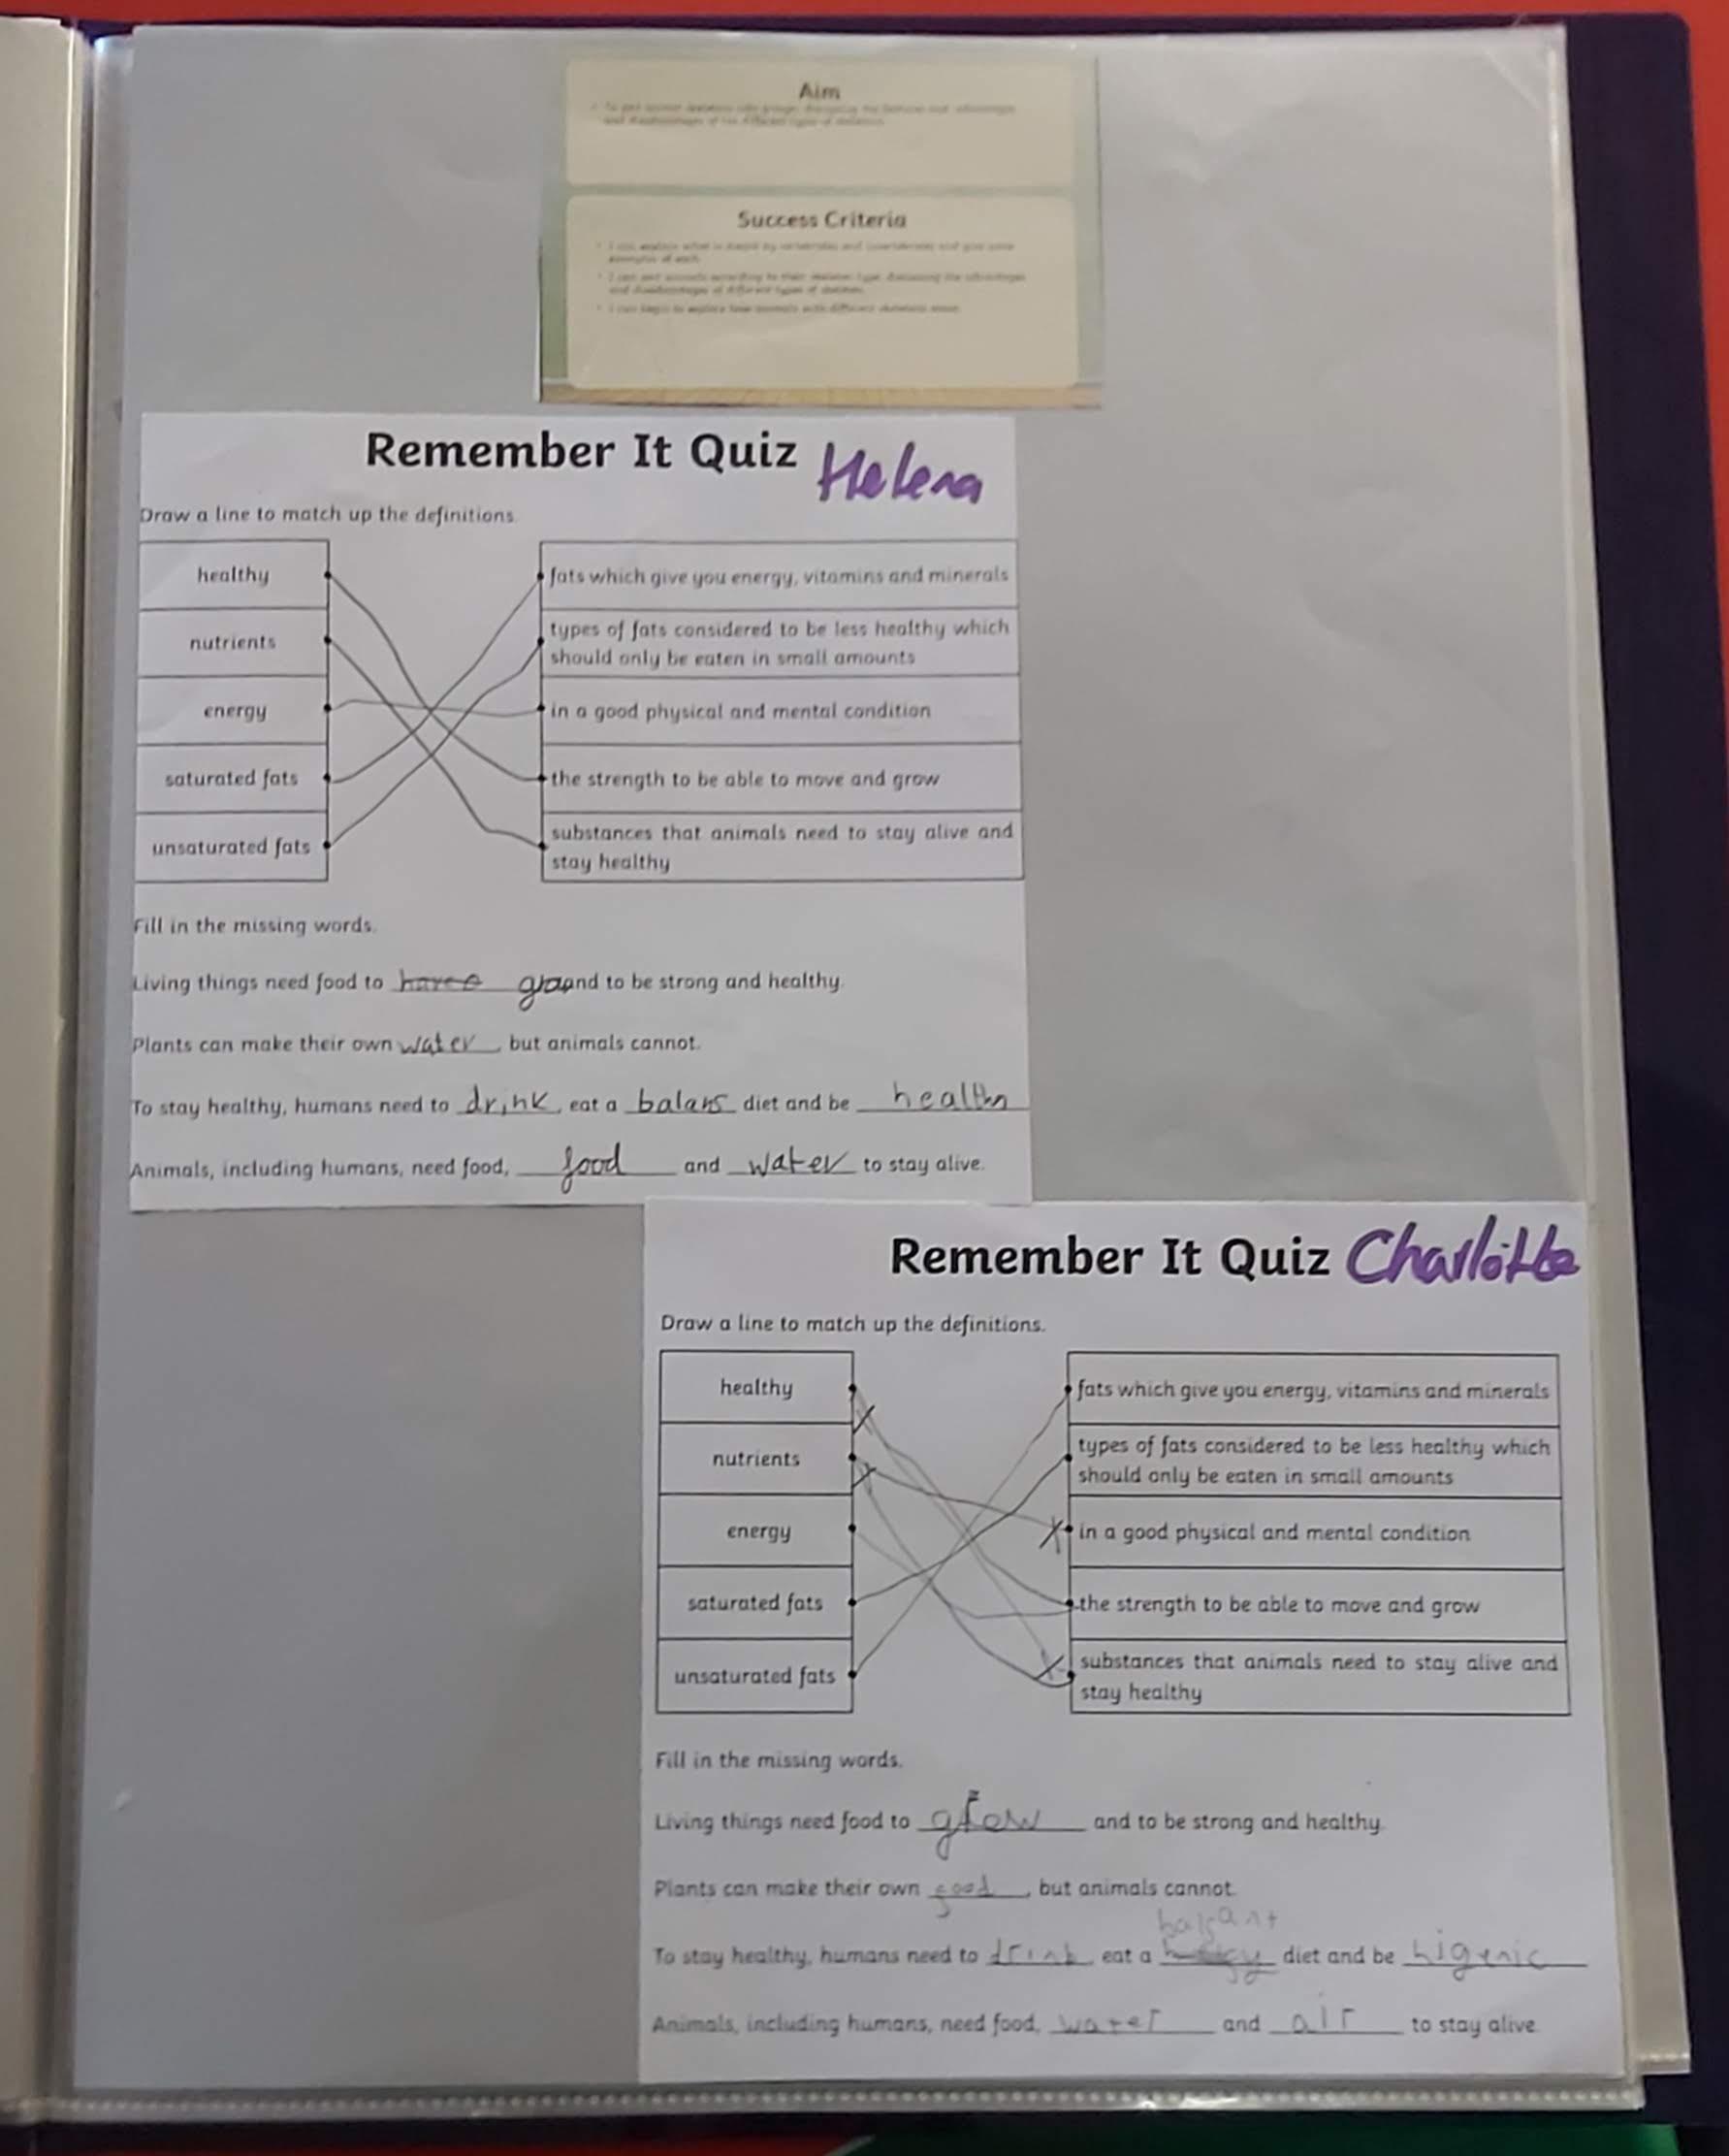 Aim
Success Criteria
Remember It Quiz Helena
Draw a line to match up the definitions.
healthy
nutrients
energy
saturated fats
unsaturated fats
fats which give you energy, vitamins and minerals
types of fats considered to be less healthy which
should only be eaten in small amounts
in a good physical and mental condition
the strength to be able to move and grow
substances that animals need to stay alive and
stay healthy
Fill in the missing words.
Living things need food to and to be strong and healthy.
Plants can make their own water, but animals cannot.
To stay healthy, humans need to drink, eat a balans diet and be
Animals, including humans, need food, food and water to stay alive.
Remember It Quiz Charlotte
Draw a line to match up the definitions.
healthy
nutrients
energy
saturated fats
unsaturated fats
fats which give you energy, vitamins and minerals
types of fats considered to be less healthy which
should only be eaten in small amounts
in a good physical and mental condition
the strength to be able to move and grow
substances that animals need to stay alive and
stay healthy
Fill in the missing words.
Living things need food to grow and to be strong and healthy.
Plants can make their own food, but animals cannot.
To stay healthy, humans need to drink, eat a diet and be higenic
Animals, including humans, need food, water and air to stay alive.